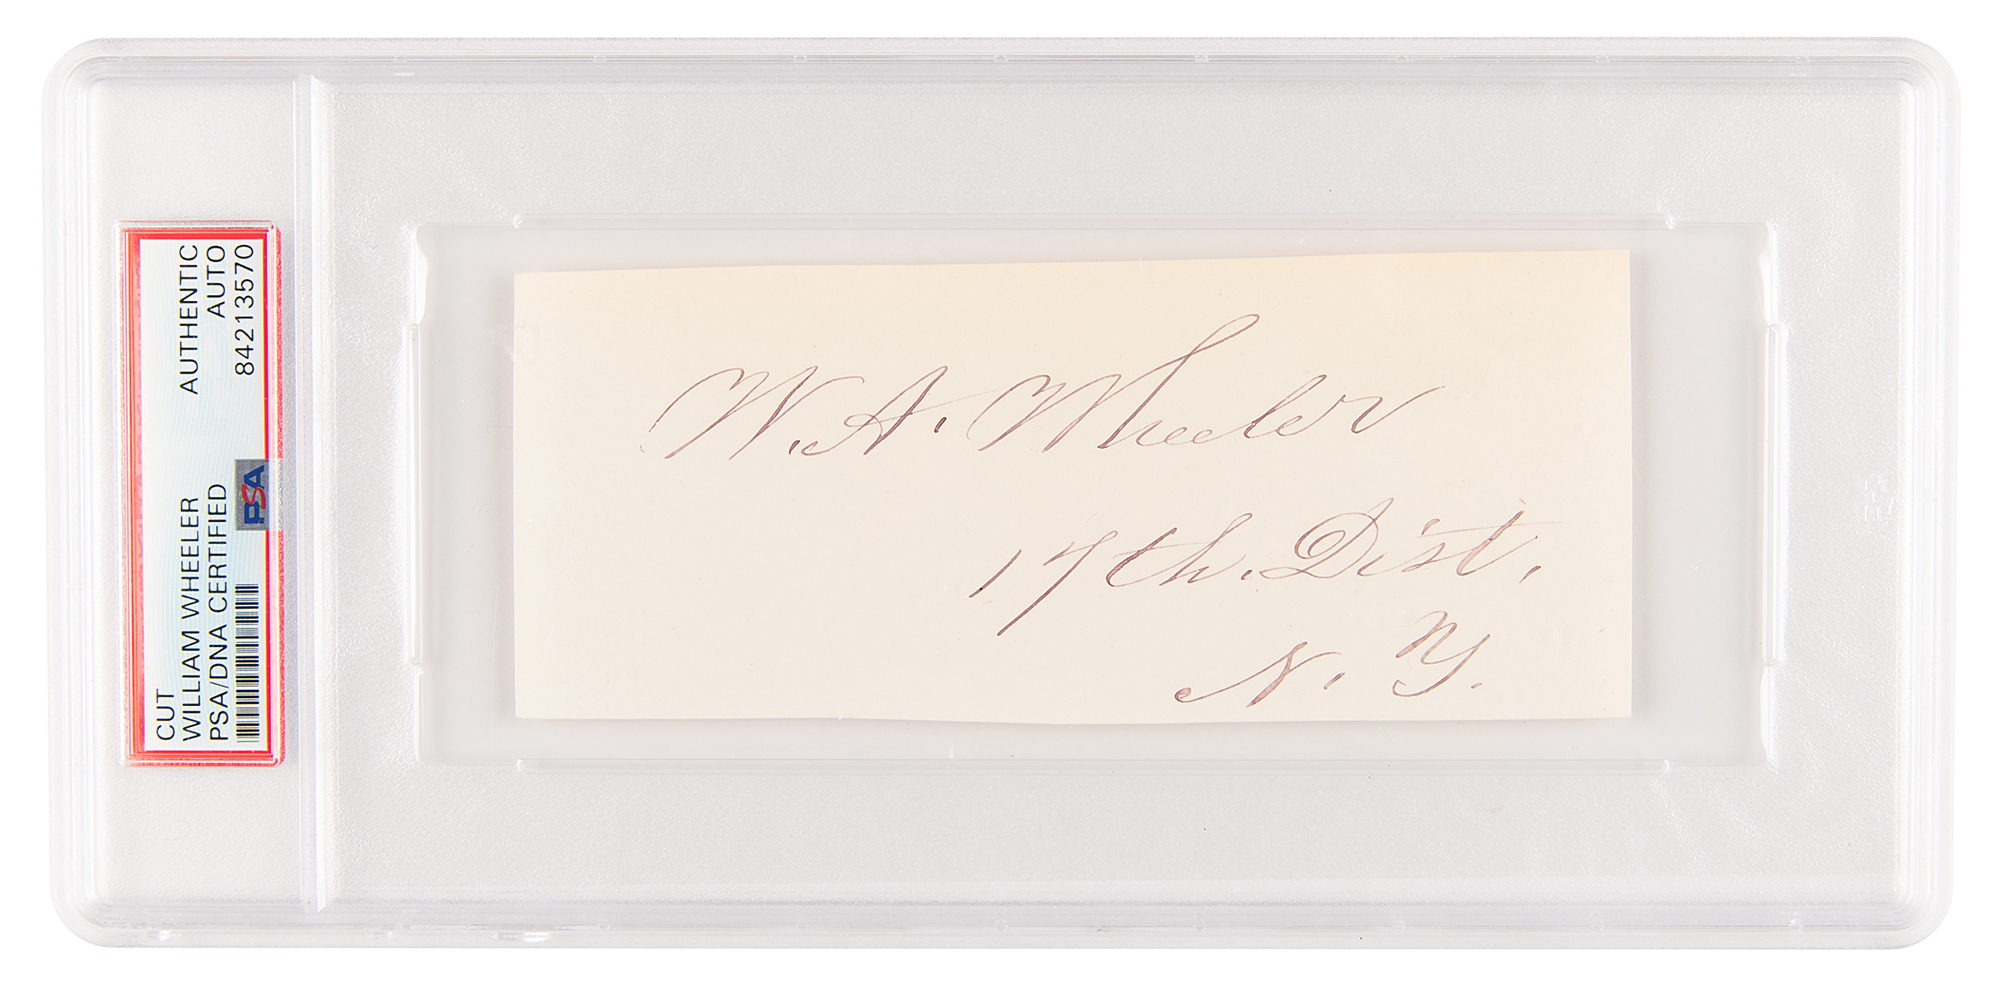 CUT
WILLIAM WHEELER
PSA/DNA CERTIFIED
AUTHENTIC
AUTO
84213570
PSA
W. A. Wheeler
17th. Dist.
N. Y.